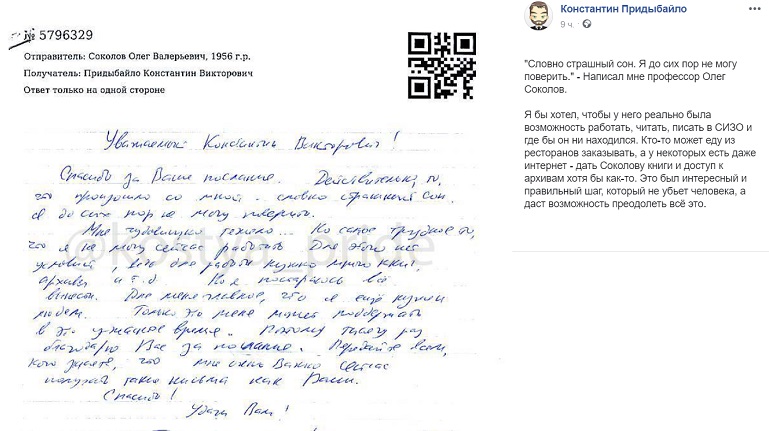 № 5796329
Отправитель: Соколов Олег Валерьевич, 1956 г.р.
Получатель: Придыбайло Константин Викторович
Ответ только на одной стороне
Уважаемый Константин Викторович!
Спасибо за Ваше послание. Действительно, то,
что произошло со мной - словно страшный сон.
Я до сих пор не могу поверить.
Мне чудовищно тяжело... Но самое трудное то,
что я не могу сейчас работать. Для этого нет
условий, ведь для работы нужно много книг,
архивы и т.д. Но я постараюсь всё
вынести. Для меня главное, что я ещё нужен
людям. Только это меня может поддержать
в это ужасное время. Поэтому тысячу раз
благодарю Вас за послание. Передайте всем,
кого знаете, что мне очень важно сейчас
получать такие письма как Ваши.
Спасибо!
Удачи Вам!
@kostya_pride
Константин Придыбайло
9 ч.
"Словно страшный сон. Я до сих пор не могу
поверить." - Написал мне профессор Олег
Соколов.
Я бы хотел, чтобы у него реально была
возможность работать, читать, писать в СИЗО и
где бы он ни находился. Кто-то может еду из
ресторанов заказывать, а у некоторых есть даже
интернет - дать Соколову книги и доступ к
архивам хотя бы как-то. Это был интересный и
правильный шаг, который не убьет человека, а
даст возможность преодолеть всё это.